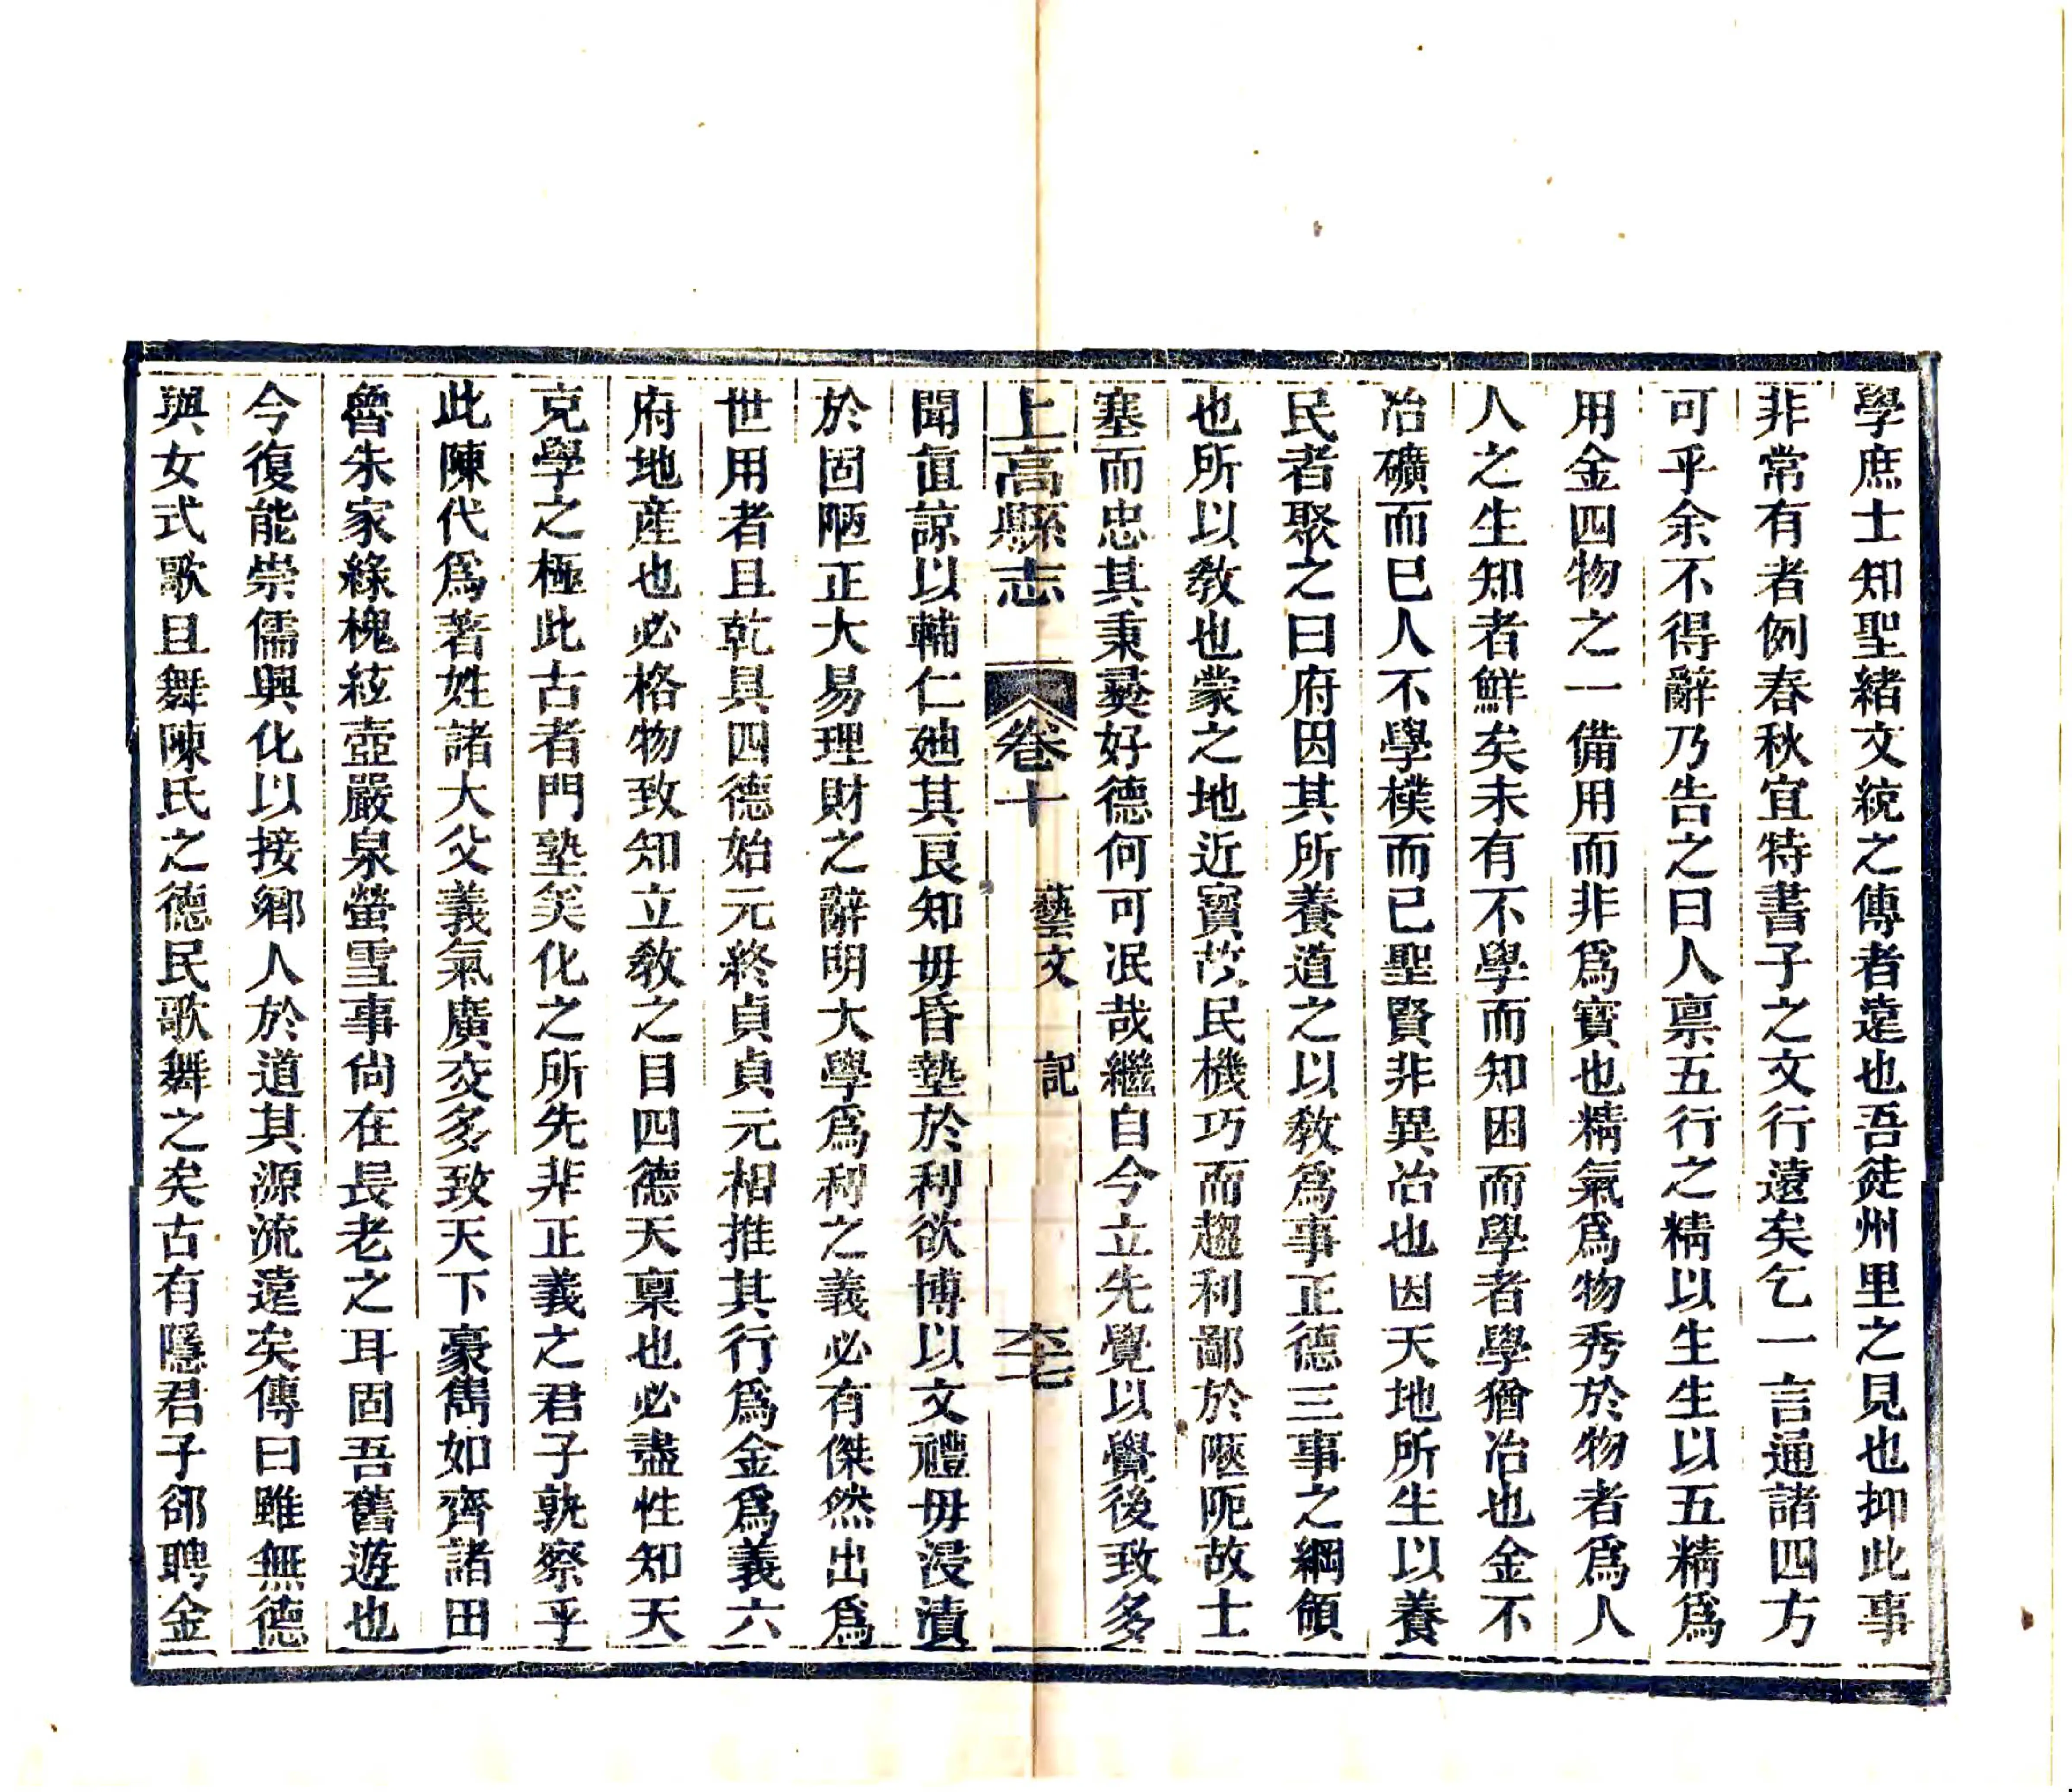 學庶士知聖緒文統之傳者遠也吾徒州里之見也抑此事
非常有者例春秋宜特書子之文行遠矣乞一言通諸四方
可乎余不得辭乃告之曰人禀五行之精以生生以五精爲
用金四物之一備用而非爲寳也精氣爲物秀於物者爲人
人之生知者鮮矣未有不學而知困而學者學猶冶也金不
冶礦而已人不學樸而已聖賢非異冶也因天地所生以養
民者聚之曰府因其所養道之以敎爲事正德三事之綱領
也所以敎也蒙之地近寳故民機巧而趨利鄙於陋阨故士
塞而忠其秉彛好德何可泯哉繼自今立先覺以覺後致多
上高縣志 卷十 藝文 記 李
聞直諒以輔仁廸其良知毋昏墊於利欲博以文禮毋浸漬
於固陋正大易理財之辭明大學爲利之義必有傑然出爲
世用者且乾具四德始元終貞貞元相推其行爲金爲義六
府地産也必格物致知立敎之目四德天禀也必盡性知天
克學之極此古者門塾矣化之所先非正義之君子孰察乎
此陳代爲著姓諸大父義氣廣交多致天下豪雋如齊諸田
魯朱家綠槐絃壺嚴泉螢雪事尙在長老之耳固吾舊遊也
今復能崇儒興化以接鄉人於道其源流遠矣傳曰雖無德
與女式歌且舞陳氏之德民歌舞之矣古有隱君子郤聘金